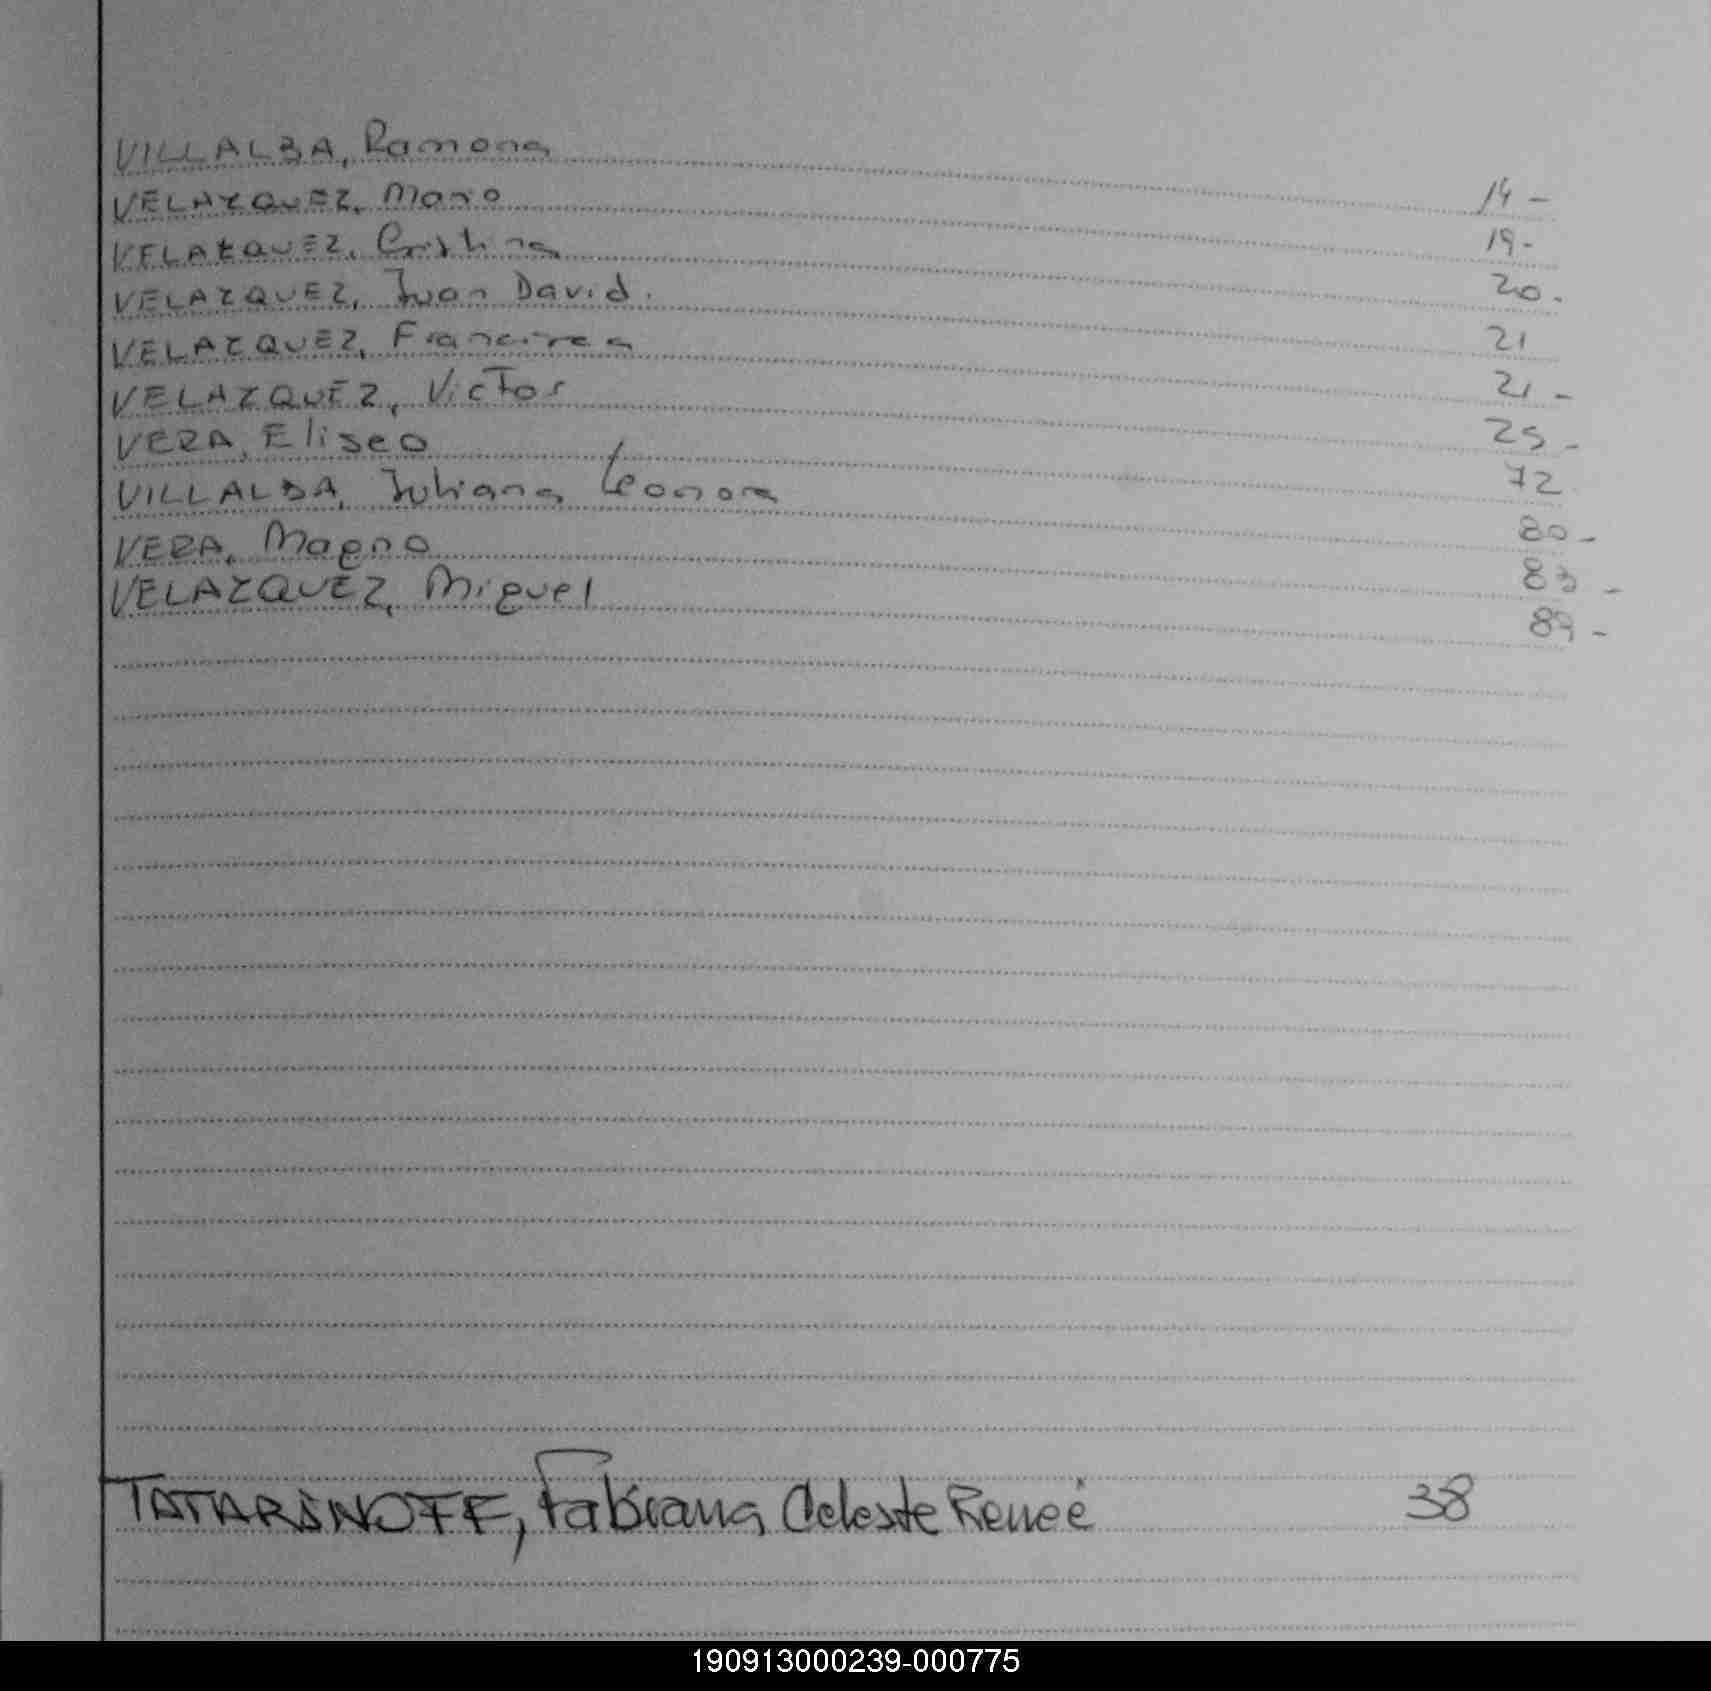 VILLALBA, Ramona 14 -
VELAZQUEZ, Mario 19 -
VELAZQUEZ, Cristina 20 -
VELAZQUEZ, Juan David. 21
VELAZQUEZ, Francisca 21 -
VELAZQUEZ, Victor 25 -
VERA, Eliseo 72
VILLALBA, Juliana Leonora 80 -
VERA, Magno 83 -
VELAZQUEZ, Miguel 89 -
TATARINOFF, Fabiana Celeste Reneé 38
190913000239-000775